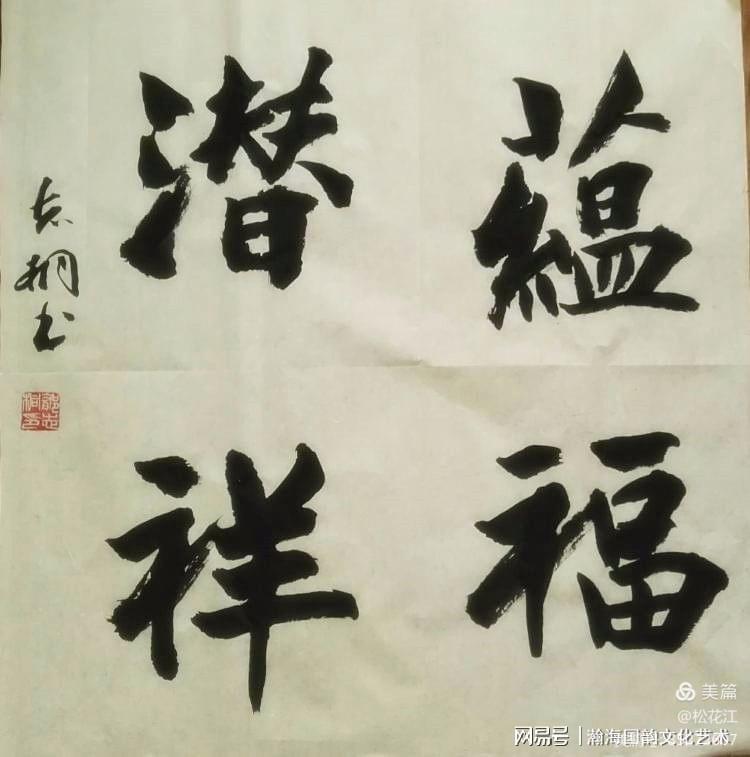 蕴福
潜祥
志桐书
美篇
@松花江
网易号 瀚海国的文化艺术